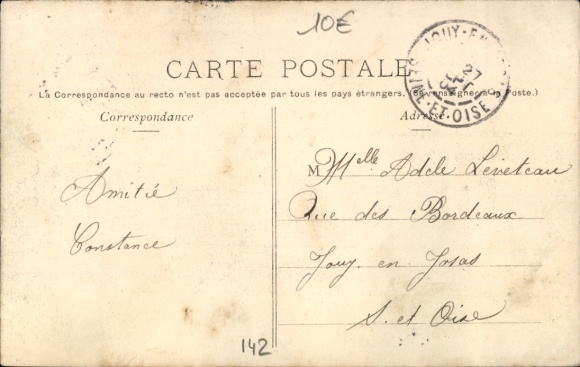 10€
JOUY-EN
27
04
SEINE-ET-OISE
CARTE POSTALE
La Correspondance au recto n'est pas acceptée par tous les pays étrangers. (Se renseigner à la Poste.)
Correspondance
Adresse
Amitié
Constance
M Melle Adele Leveteau
Rue des Bordeaux
Jouy en Josas
S. et Oise
142